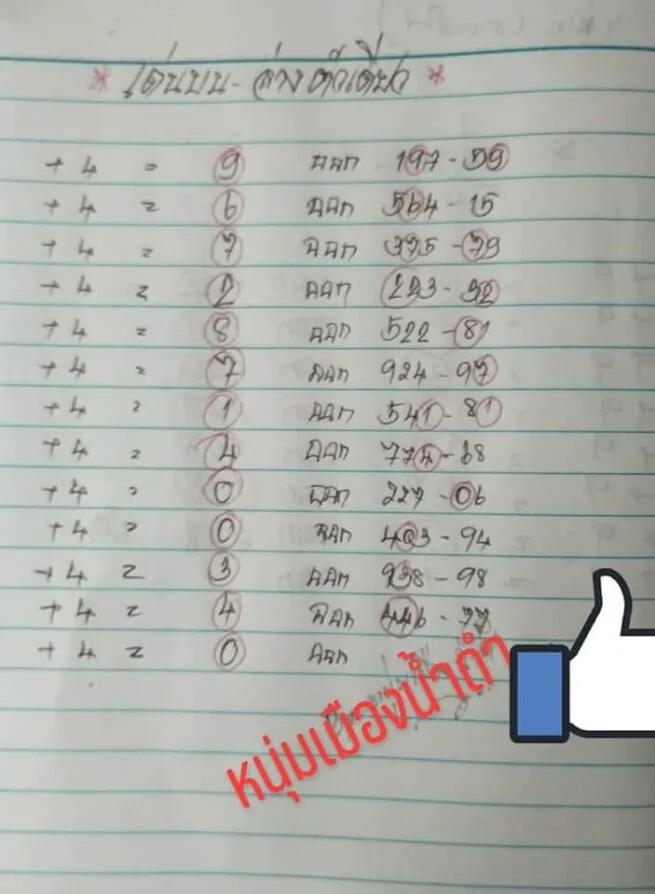 * เด่นบน-ล่างตัวเดียว *
+ 4 = 9 ออก 197 - 59
+ 4 = 6 ออก 564 - 15
+ 4 = 7 ออก 375 - 79
+ 4 = 2 ออก 223 - 32
+ 4 = 8 ออก 522 - 81
+ 4 = 7 ออก 924 - 97
+ 4 = 1 ออก 541 - 81
+ 4 = 4 ออก 774 - 68
+ 4 = 0 ออก 227 - 06
+ 4 = 0 ออก 403 - 94
+ 4 = 3 ออก 938 - 98
+ 4 = 4 ออก 446 - 77
+ 4 = 0 ออก
หนุ่มเมืองน้ำดำ